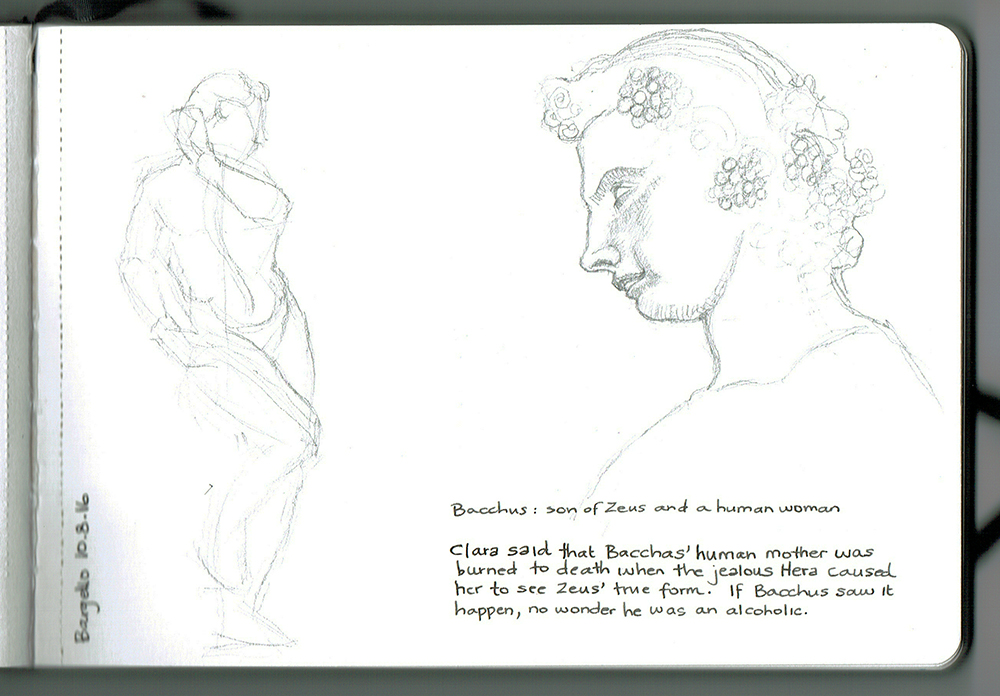 Bacchus: son of Zeus and a human woman
Clara said that Bacchas' human mother was
burned to death when the jealous Hera caused
her to see Zeus' true form. If Bacchus saw it
happen, no wonder he was an alcoholic.
Bargello 10.8.16